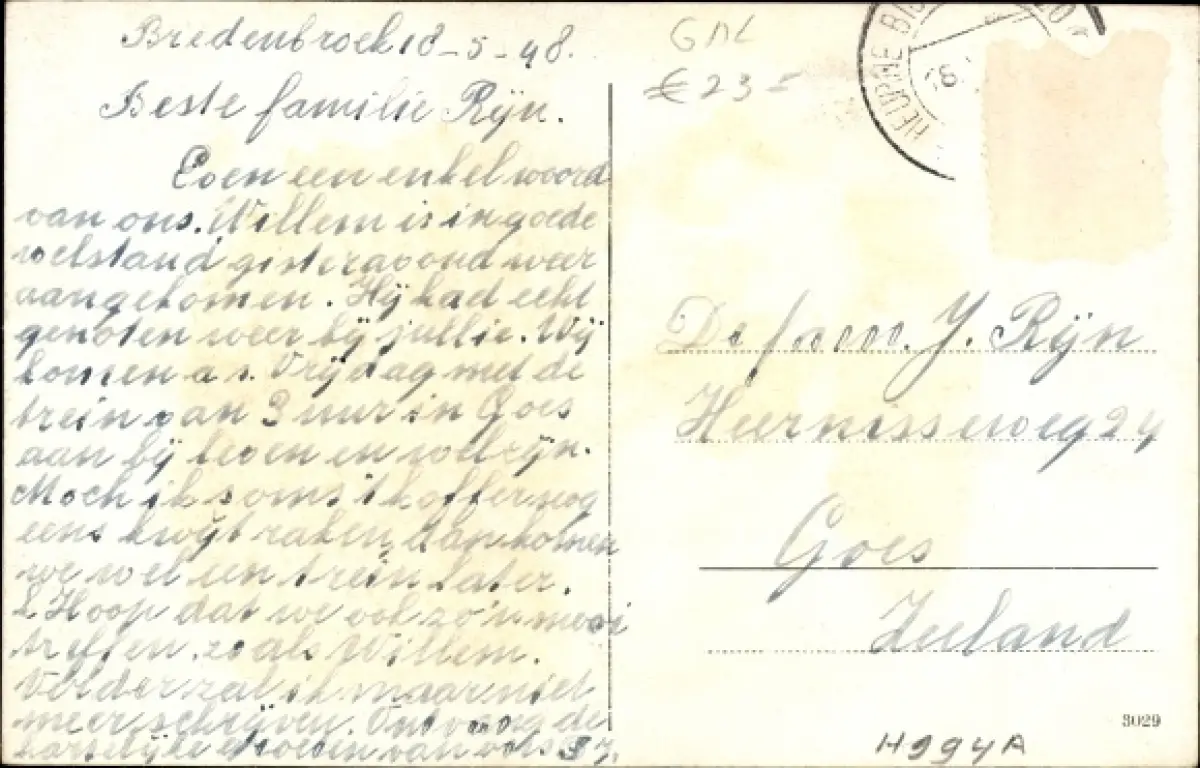 Bredenbroek 18-5-48.
Beste familie Rijn.
Even een enkel woord
van ons. Willem is in goede
welstand gisteravond weer
aangekomen. Hij had echt
genoten weer bij jullie. Wij
komen a s. Vrijdag met de
trein van 3 uur in Goes
aan bij leven en welzijn.
Moch ik soms 't koffer nog
eens kwijt raken, dan komen
we wel een trein later.
Hoop dat we ook zo'n mooi
treffen. zoals Willem.
Verder zal ik maar niet
meer schrijven. Ontvang de
hartelijke groeten van ons
GAL
€ 23-
HEURNE
18.
De fam. J. Rijn
Heernisseweg 24
Goes
Zeeland
3029
H994A